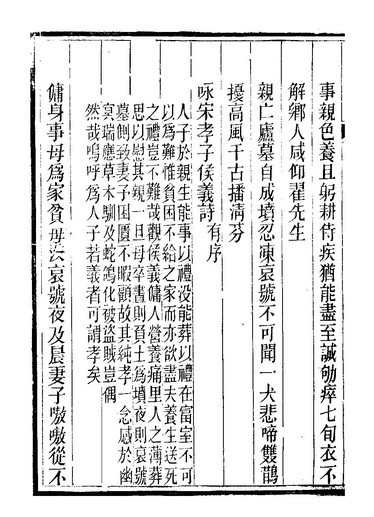 事親色養且躬耕侍疾猶能盡至誠劬瘁七旬衣不
解鄉人咸仰翟先生
親亡廬墓自成墳忍凍哀號不可聞一犬悲啼雙鵲
擾高風千古播淸芬
咏宋孝子侯義詩有序
人子於親生能事以禮没能葬以禮在富室不可
以爲難惟貧困不給之家而亦欲盡夫養生送死
之禮豈不難哉觀侯義傭人營養痛里人之薄葬
思以慰其親一旦母卒晝則負土爲墳夜則哀號
墓側致妻子困匱不暇顧故其純孝一念感於幽
冥瑞應草木馴及蛇鴿化被盜賊豈偶
然哉嗚呼爲人子若義者可謂孝矣
傭身事母爲家貧母去哀號夜及晨妻子嗷嗷從不